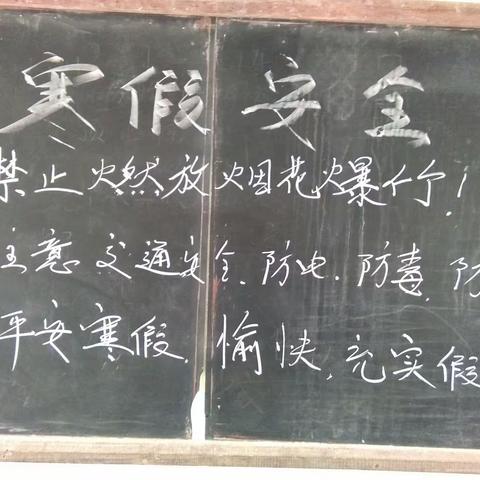 寒假安全
禁止燃放烟花爆竹！
注意交通安全、防电、防毒、防
平安寒假，愉快，充实假